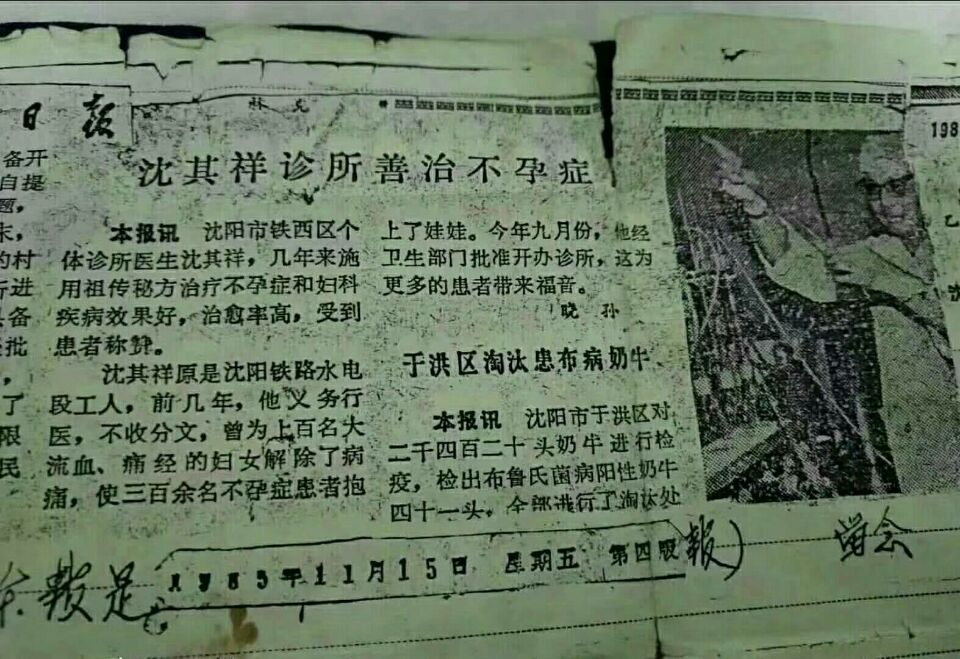 日报
林 克
备开
自提
题，
末，
的村
行进
具备
批
，
了
限
民
沈其祥诊所善治不孕症
本报讯 沈阳市铁西区个
体诊所医生沈其祥，几年来施
用祖传秘方治疗不孕症和妇科
疾病效果好，治愈率高，受到
患者称赞。
沈其祥原是沈阳铁路水电
段工人，前几年，他义务行
医，不收分文，曾为上百名大
流血、痛经的妇女解除了病
痛，使三百余名不孕症患者抱
上了娃娃。今年九月份，他经
卫生部门批准开办诊所，这为
更多的患者带来福音。
晓 孙
于洪区淘汰患布病奶牛
本报讯 沈阳市于洪区对
二千四百二十头奶牛进行检
疫，检出布鲁氏菌病阳性奶牛
四十一头，全部进行了淘汰处
198
乙
报是
1985年11月15日 星期五 第四版
报） 留念